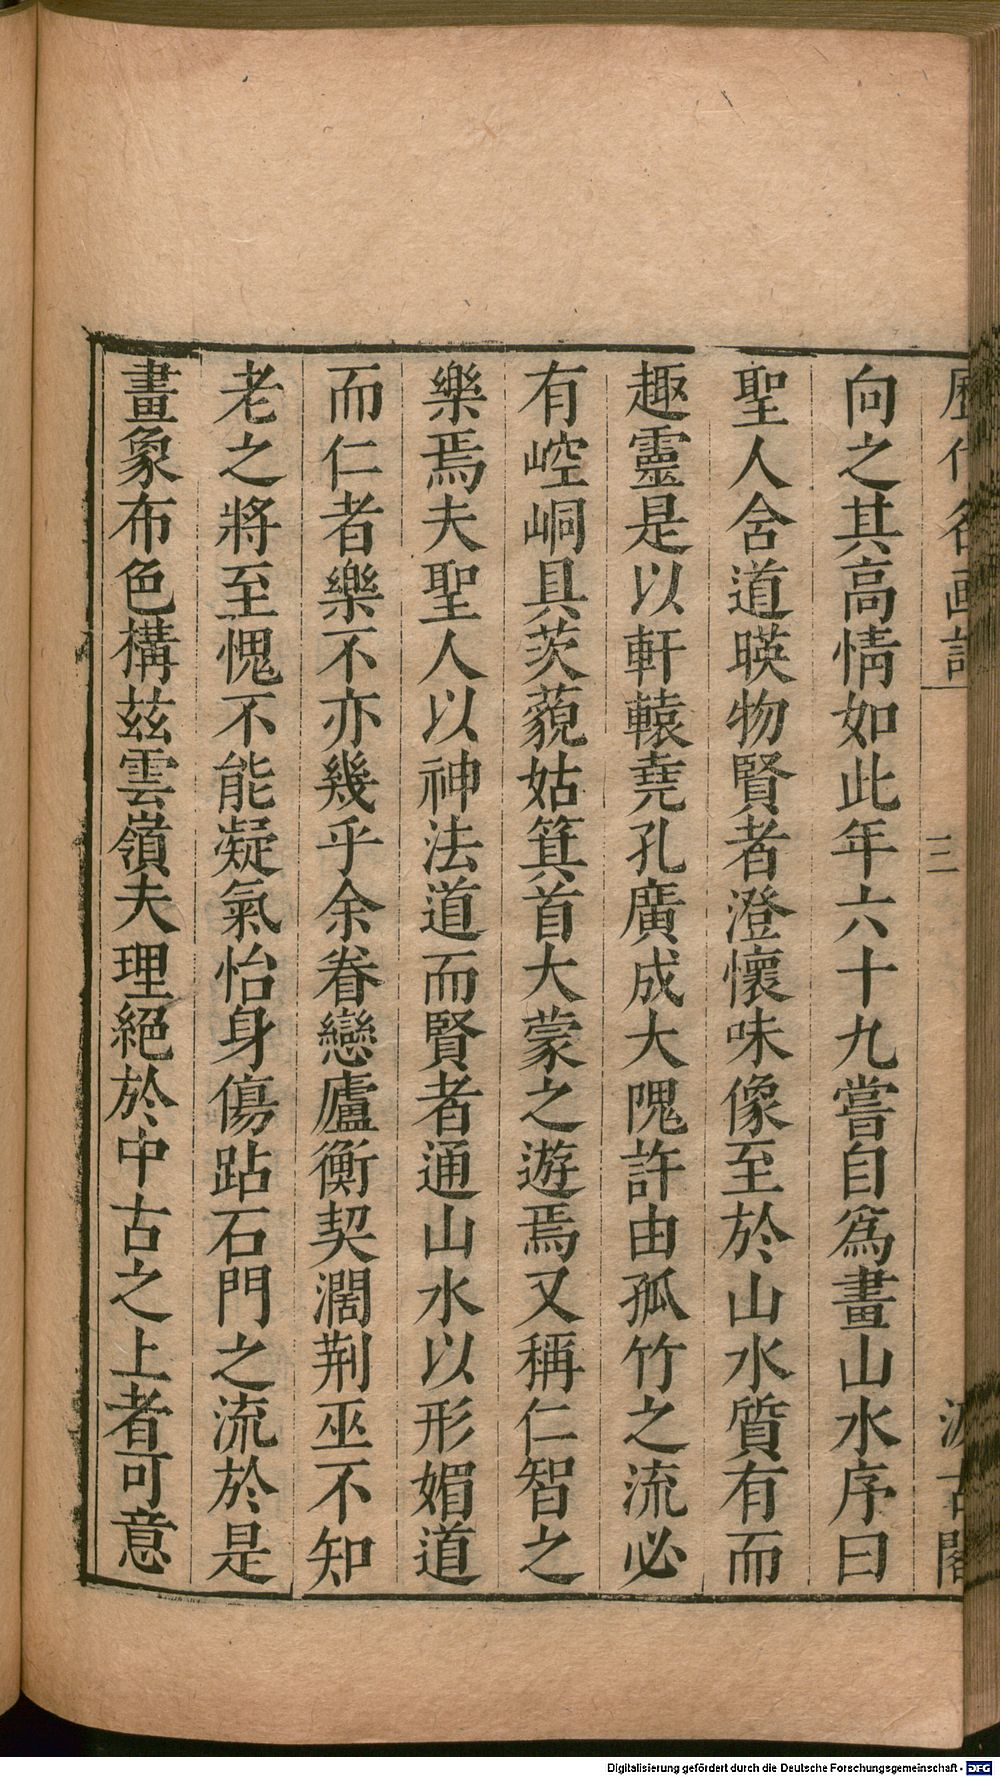 歷代名画記
三
汲古閣
向之其高情如此年六十九嘗自爲畫山水序曰
聖人含道暎物賢者澄懷味像至於山水質有而
趣靈是以軒轅堯孔廣成大隗許由孤竹之流必
有崆峒具茨藐姑箕首大蒙之遊焉又稱仁智之
樂焉夫聖人以神法道而賢者通山水以形媚道
而仁者樂不亦幾乎余眷戀廬衡契濶荆巫不知
老之將至愧不能凝氣怡身傷跕石門之流於是
畫象布色構茲雲嶺夫理絕於中古之上者可意
Digitalisierung gefördert durch die Deutsche Forschungsgemeinschaft - DFG